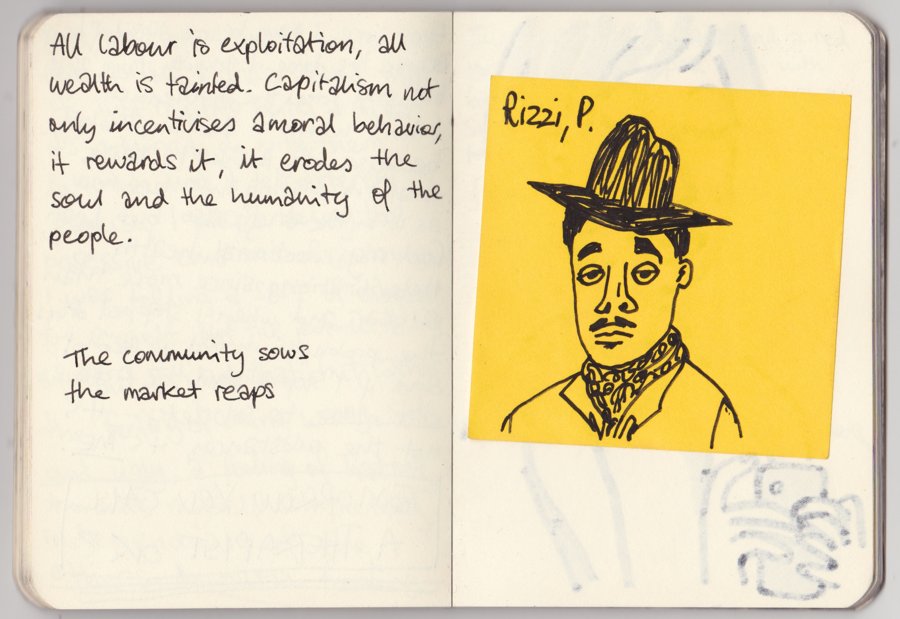 All labour is exploitation, all
wealth is tainted. Capitalism not
only incentivises amoral behavior,
it rewards it, it erodes the
soul and the humanity of the
people.
The community sows
the market reaps
Rizzi, P.